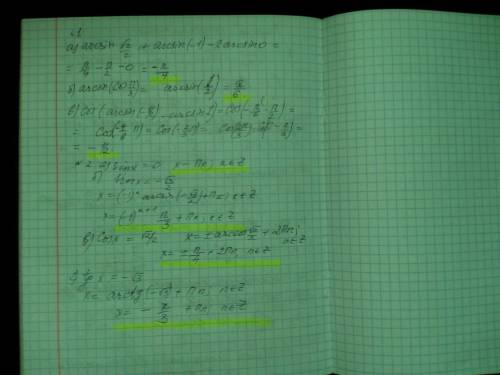 №1
а) arcsin √2/2 + arcsin(-1) - 2arcsin0 =
= π/4 - π/2 - 0 = -π/4
б) arcsin(cos π/3) = arcsin(1/2) = π/6
в) Cos(arcsin(-1/2) - arcsin1) = Cos(-π/6 - π/2) =
= -1/2
№2. а) Sinx = 0 x = πn; n∈Z
б) Sinx = -√3/2
x = (-1)ⁿ arcsin(-√3/2) + πn; n∈Z
x = (-1)ⁿ⁺¹ π/3 + πn; n∈Z
в) Cosx = √2/2 x = ± arccos √2/2 + 2πn; n∈Z
x = ± π/4 + 2πn; n∈Z
г) tg x = -√3
x = arctg(-√3) + πn; n∈Z
x = - π/3 + πn; n∈Z